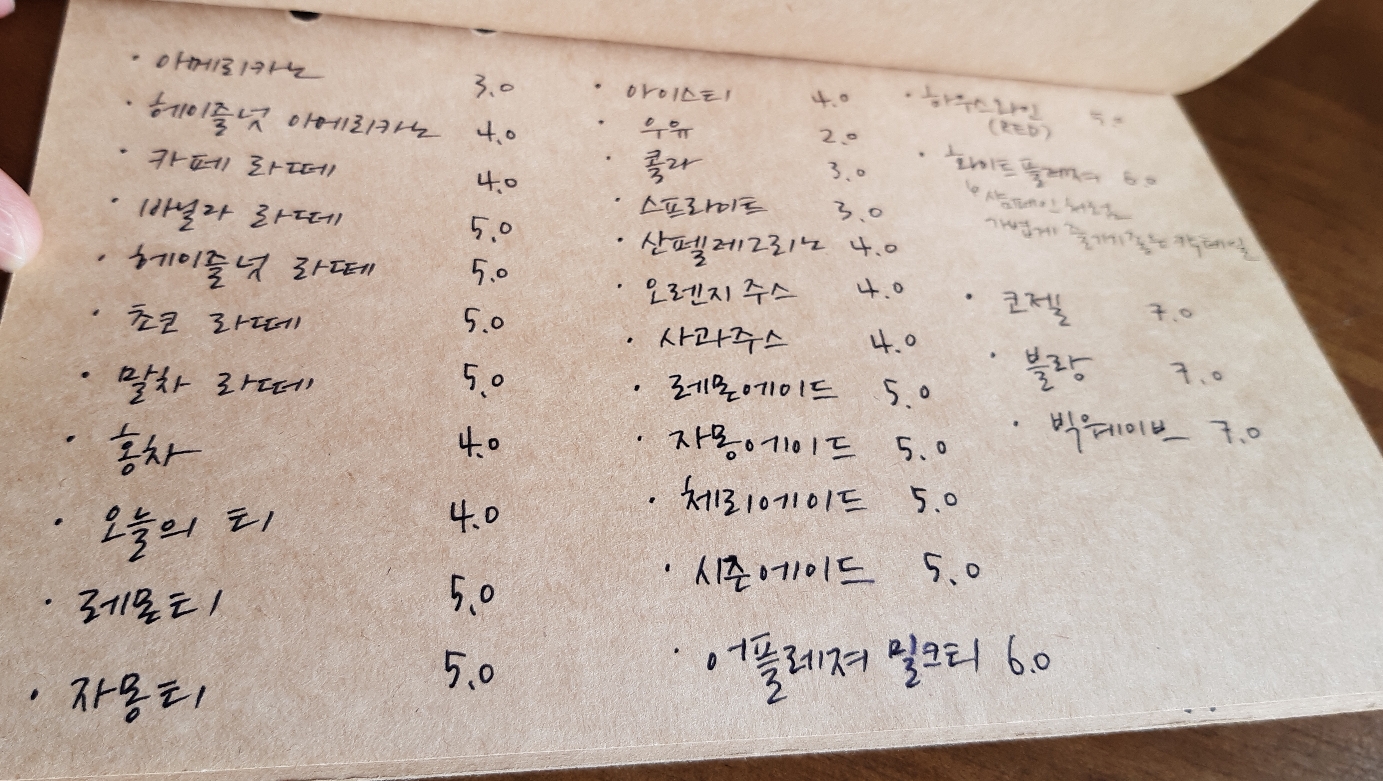 · 아메리카노 3.0
· 헤이즐넛 아메리카노 4.0
· 카페 라떼 4.0
· 바닐라 라떼 5.0
· 헤이즐넛 라떼 5.0
· 쵸코 라떼 5.0
· 말차 라떼 5.0
· 홍차 4.0
· 오늘의 티 4.0
· 레몬티 5.0
· 자몽티 5.0
· 아이스티 4.0
· 우유 2.0
· 콜라 3.0
· 스프라이트 3.0
· 산펠레그리노 4.0
· 오렌지 주스 4.0
· 사과주스 4.0
· 레몬에이드 5.0
· 자몽에이드 5.0
· 체리에이드 5.0
· 시즌에이드 5.0
· 어플레져 밀크티 6.0
· 하우스와인 5.0
(RED)
· 화이트 플레져 6.0
샴페인 처럼
가볍게 즐기기좋은 칵테일
· 코젤 7.0
· 블랑 7.0
· 빅웨이브 7.0